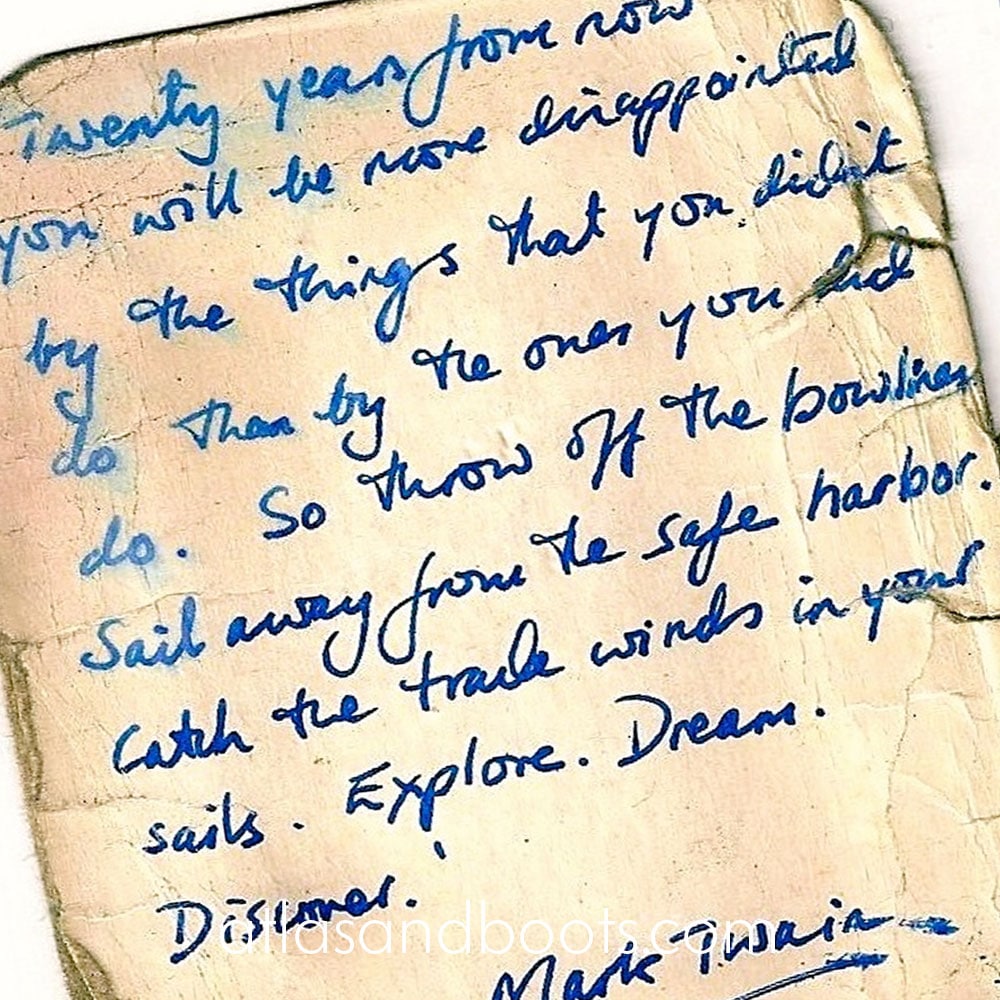 Twenty years from now
you will be more disappointed
by the things that you didn't
do than by the ones you did
do. So throw off the bowlines
Sail away from the safe harbor.
Catch the trade winds in your
sails. Explore. Dream.
Discover.
atlasandboots.com
Mark Twain